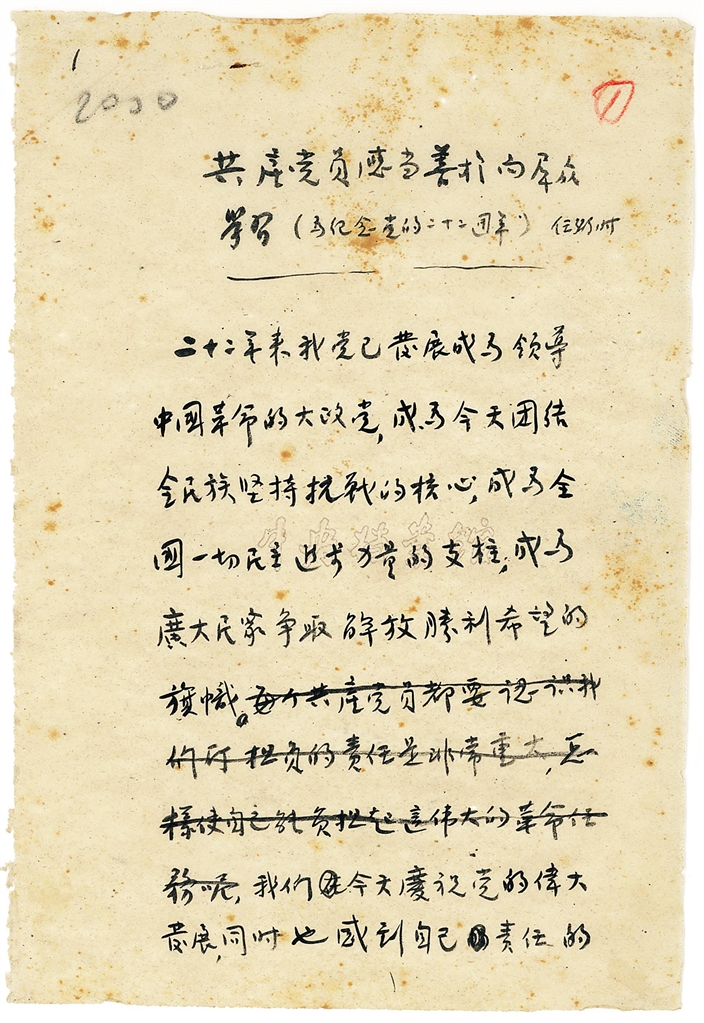 1
2030
共產党員應当善於向群众
學習(为纪念党的二十二週年) 任弼时
二十二年来我党已發展成为领导
中國革命的大政党,成为今天团结
全民族坚持抗戰的核心,成为全
國一切民主进步力量的支柱,成为
廣大民眾争取解放勝利希望的
旗幟。每个共產党員都要認识我
们所担负的責任是非常重大,怎
樣使自己能負担起這伟大的革命任
務呢,我们在今天慶祝党的偉大
發展,同时也感到自己責任的